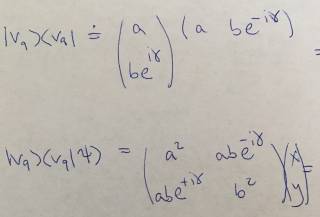 |v_q⟩⟨v_q| ≐ (a be^{iγ}) (a be^{-iγ}) =
|v_q⟩⟨v_q|ψ⟩ = (a² abe^{-iγ} abe^{+iγ} b²)(x y) =